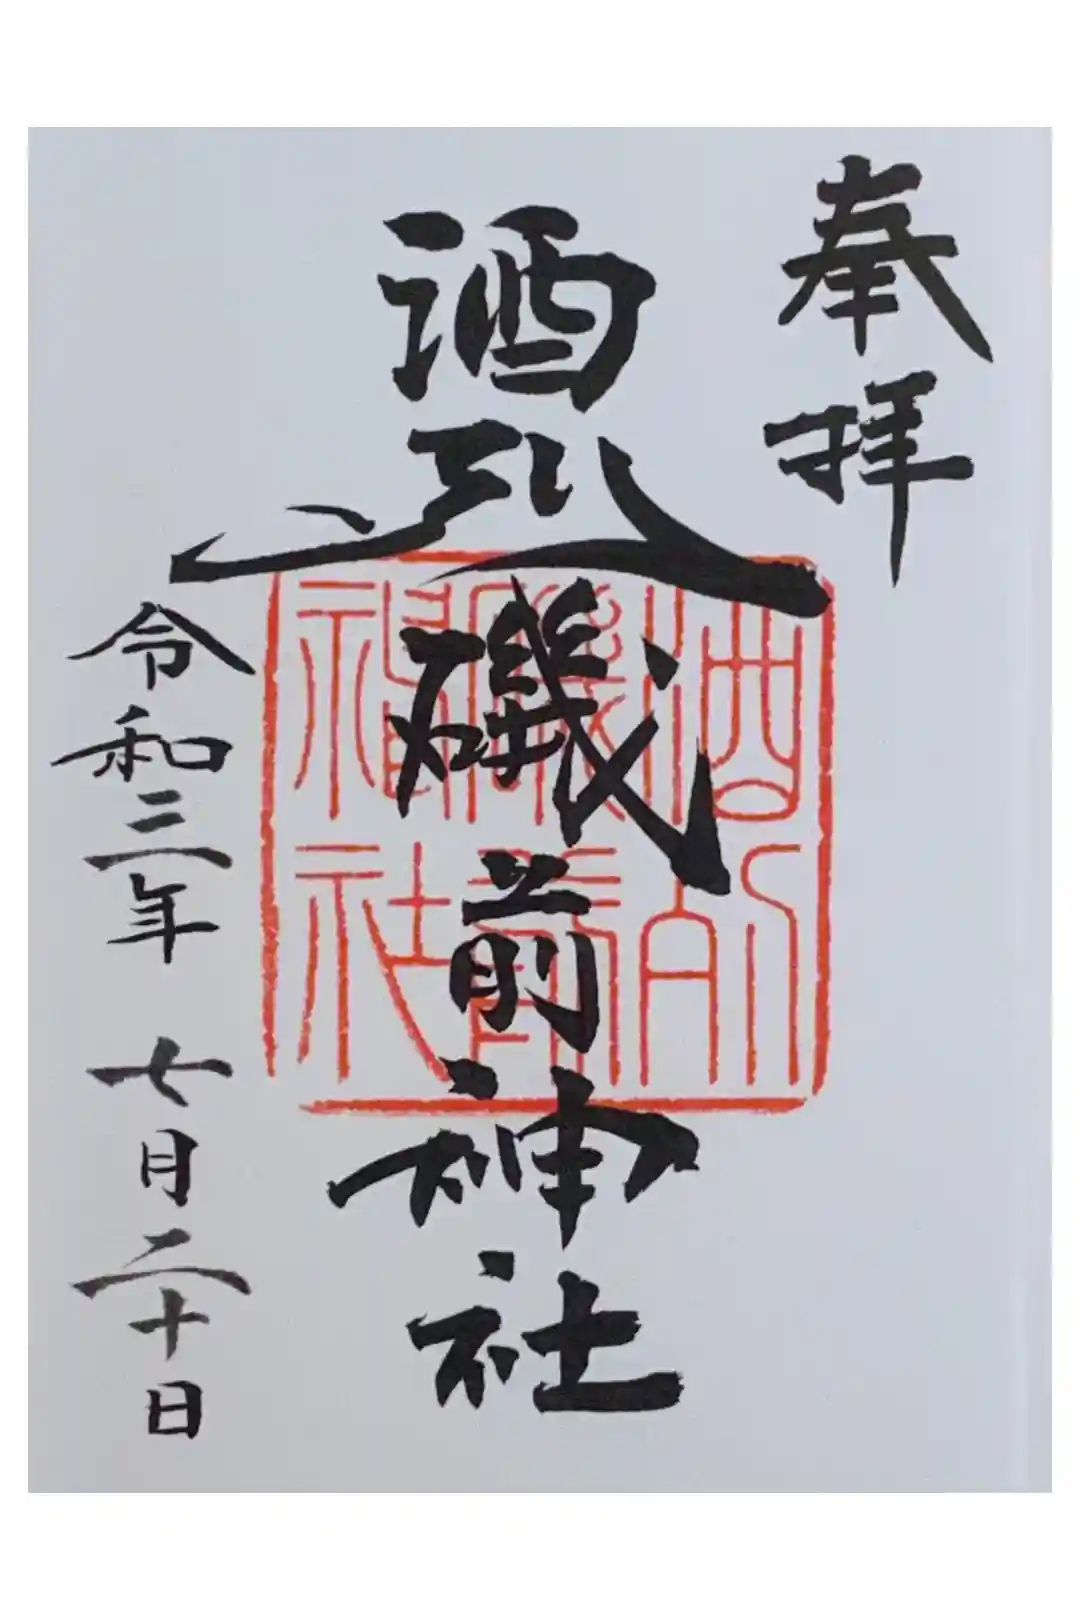 奉拝
酒列磯前神社
酒列
磯前
神社
令和三年 七月二十日